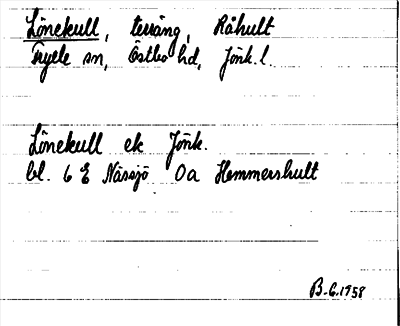 Lönekull, terräng, Råhult
Tryele sn, Östbo hd, Jönk. l.
Lönekull ek Jönk.
bl. 6 E Nässjö 0a Hemmershult
B.G. 1958